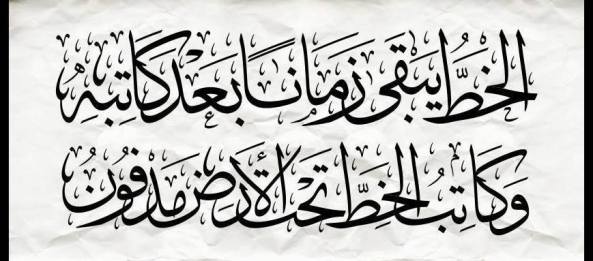 الخَطُّ يَبْقَى زَمَانًا بَعْدَ كَاتِبِهِ
وَكَاتِبُ الخَطِّ تَحْتَ الأَرْضِ مَدْفُونُ